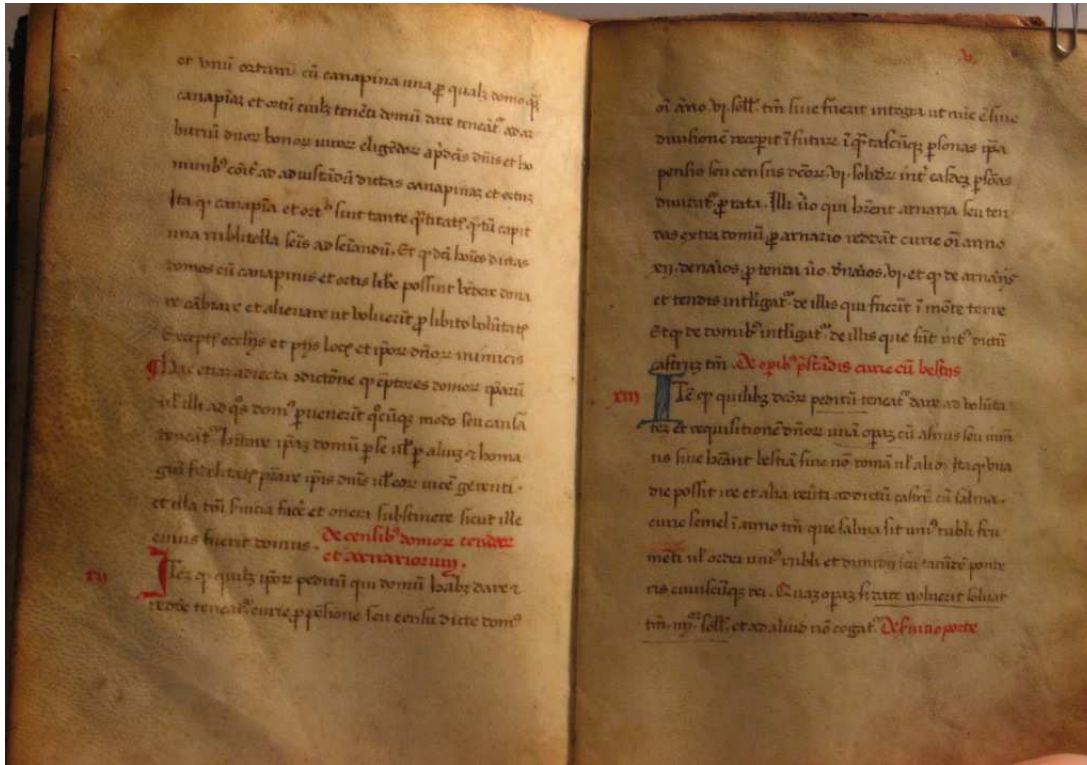 et unū ortum cū canapina una ꝓ qualꝫ domo q̄ꝫ
canapiaꝫ et ortū cuilꝫ tenēti domū dare teneāt᷑ ad ar
bitriū dn̄oꝝ bonoꝝ uiroꝝ eligēdoꝝ a p̄dc̄is dn̄is et ho
minibꝰ cōit᷑ ad adiustādū dictas canapinas et ortus
Ita ꝙ canapīa et ortꝰ sint tante q̄titatis q̄tū capit
una rublitella seīs ad seīandū. Et ꝙ dc̄i hoīes dictas
domos cū canapinis et ortis libe possint vēdere dona
re cābiare et alienare ut voluerīt ꝓ libito volūtatis
Exceptis ecclijs et pijs locis et ipoꝝ dn̄oꝝ inimicis
Hac etiaꝫ adiecta ꝯdictōne ꝙ ēptores domoꝝ ipaꝝ
ul̄ illi ad q̄s domꝰ peruenerīt q̄cūqꝫ modo seu causa
teneāt᷑ hītare ipaꝫ domū ꝑ se ul̄ ꝑ aliuꝫ ⁊ homa
giū fidelitatis p̄stare ipis dn̄is ul̄ eoꝝ vicē gerenti.
et illa tm̄ s̄uicia facē et oneri substinere sicut ille
cuius fuerit domus. De censibꝰ domoꝝ tendaꝝ
et arnariorum.
xij Iteꝫ ꝙ quilꝫ ipoꝝ peditū qui domū habꝫ dare ⁊
redde teneat᷑ curie ꝓ pēsione seu censu dicte domꝰ
v.
oī āno .vi. soll̄. tm̄ siue fuerit integra ut nūc ē siue
diuisionē recepit ī futuꝝ ī q̄tascūqꝫ ꝑsonas ipa
pensio seu census dc̄oꝝ .vi. solidoꝝ int̄ easdeꝫ ꝑsōas
diuidat᷑ ꝓ rata. Illi ūo qui hr̄ent arnaria seu ten
das extra domū ꝓ arnario reddāt curie oī anno
xij. denaios ꝓ tenda ūo dn̄aios .vi. et ꝙ de arnarijs
et tendis intl̄igat᷑ de illis qui fuerīt ī mōte terre
Et ꝙ de domibꝰ intl̄igat᷑ de illis que sūt int̄ dictū
castruꝫ tm̄. De opibꝰ p̄stādis curie cū bestijs
xiij Itē ꝙ quilibꝫ dc̄oꝝ peditū teneat᷑ dare ad volūta
teꝫ et requisitionē dn̄oꝝ unā opaꝫ cū asinis seu iumē
tis siue hēant bestiā siue nō romā ul̄ alio. Ita ꝙ una
die possit ire et alia reūti ad dictū castrū cū salma
curie semel ī anno tm̄ que salma sit uniꝰ rubli fru
mēti ul̄ ordei uniꝰ rubli et dimidij seu tātūdē ponde
ris cuiuscūqꝫ rei. Quaꝫ opaꝫ si dare noluerit soluat
tm̄. iijᵒʳ soll̄. et ad aliud nō cogat᷑.